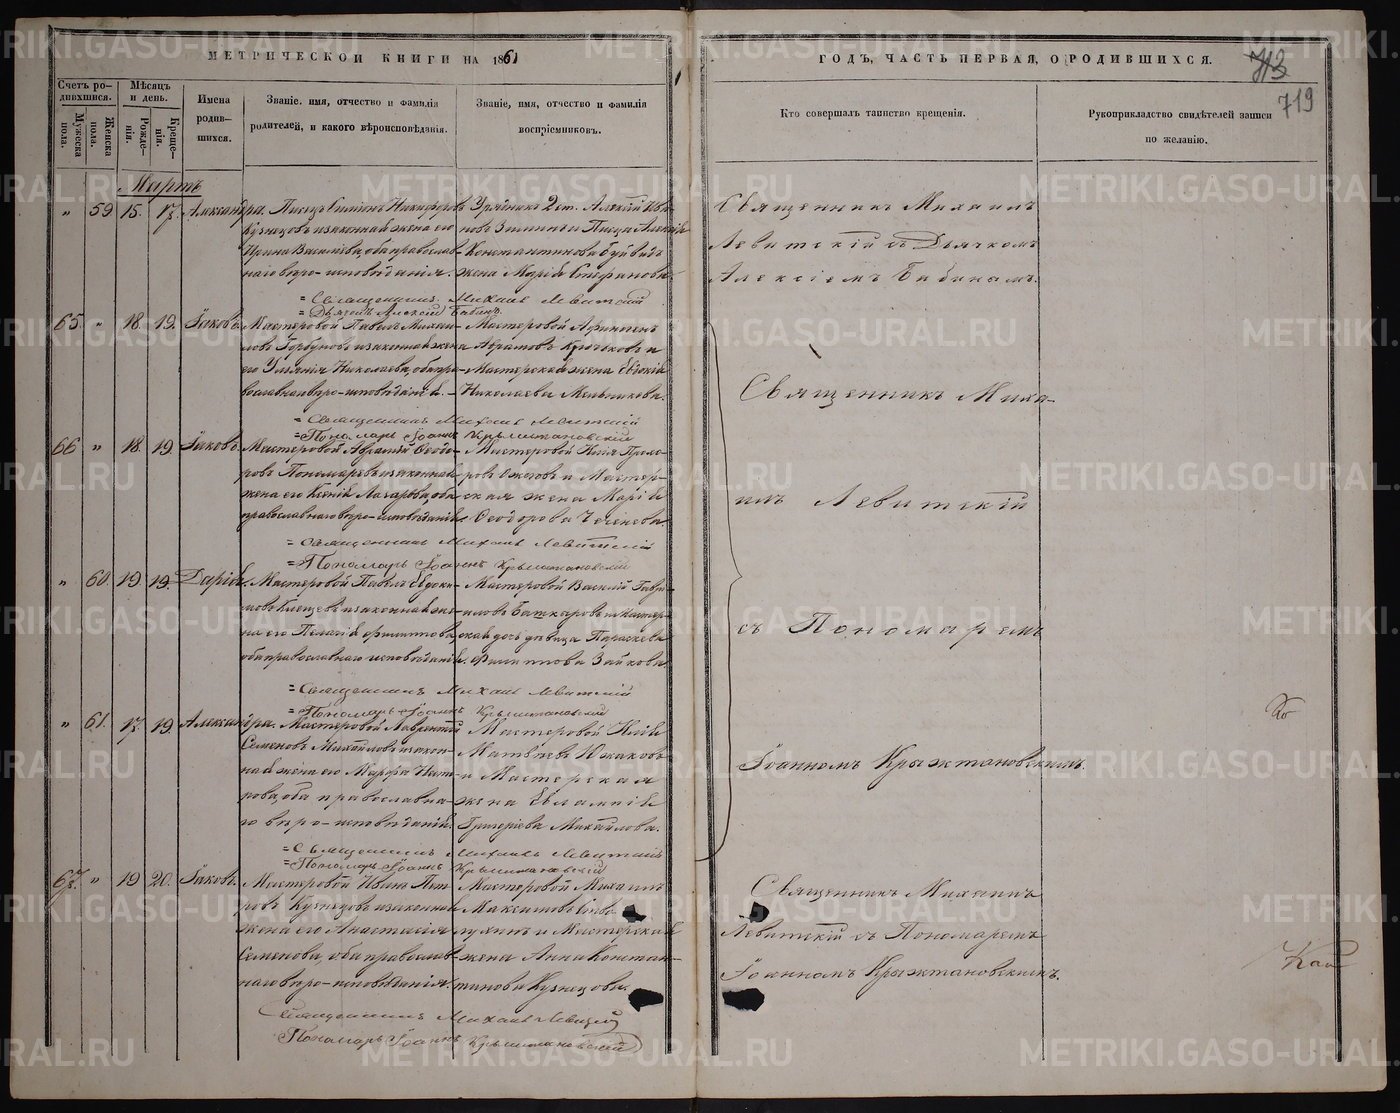 МЕТРИЧЕСКОЙ КНИГИ НА 1861
ГОДЪ, ЧАСТЬ ПЕРВАЯ, О РОДИВШИХСЯ.
713
719
Счетъ родившихся.
Мужеска пола.
Женска пола.
Мѣсяцъ и день.
Рожденія.
Крещенія.
Имена родившихся.
Званіе, имя, отчество и фамилія
родителей, и какого вѣроисповѣданія.
Званіе, имя, отчество и фамилія
воспріемниковъ.
Кто совершалъ таинство крещенія.
Рукоприкладство свидѣтелей записи
по желанію.
Мартъ
" 59 15. 17. Александра.
Писецъ Симіонъ Никифоровъ
Кузнецовъ и законная жена его
Ирина Васильева, оба православ-
наго вѣро-исповѣданія.
Урядникъ 2 ст. Алексій Ива-
новъ Зиминъ и Писца Алексія
Константинова
жена Марія Стефанова
Священникъ Михаилъ
Левитскій съ Дьячкомъ
Алексіемъ Бабинымъ.
= Священникъ Михаилъ Левитскій
= Дьячекъ Алексій Бабинъ.
65. " 18. 19. Іаковъ.
Мастеровой Павелъ Михаи-
ловъ Горбуновъ и законная жена
его Ульянія Николаева, оба пра-
вославнаго вѣро-исповѣданія.
Мастеровой Афиногенъ
Абрамовъ Крючковъ и
Мастерская жена Евдокія
Николаева Мельникова.
= Священникъ Михаилъ Левитскій
= Пономарь Іоаннъ Крыжтановскій
66 " 18. 19. Іаковъ.
Мастеровой Авраамій Ѳеодо-
ровъ Пономаревъ и законная
жена его Ксенія Лазарева, оба
православнаго вѣро-исповѣданія.
ровъ Ожеговъ и Мастер-
ская жена Марія
Ѳеодорова
= Священникъ Михаилъ Левитскій
= Пономарь Іоаннъ Крыжтановскій
" 60. 19 19. Дарія.
Мастеровой Павелъ Евдоки-
мовъ Клещевъ и законная же-
на его Пелагія Филиппова,
оба православнаго исповѣданія.
Мастеровой Василій Гаври-
ловъ Башкировъ и Мастер-
ская дочь дѣвица Параскева
Филиппова Зайкова.
= Священникъ Михаилъ Левитскій
= Пономарь Іоаннъ Крыжтановскій
" 61. 17. 19. Александра.
Мастеровой Лаврентій
Семеновъ Михайловъ и закон-
ная жена его Марфа
оба православна-
го вѣро-исповѣданія.
Мастеровой Илія
Матвѣевъ Южаковъ
и Мастерская
жена Евлампія
Григоріева Михайлова.
= Священникъ Михаилъ Левитскій
= Пономарь Іоаннъ Крыжтановскій
Священникъ Миха-
илъ Левитскій
съ Пономаремъ
Іоанномъ Крыжтановскимъ.
67. " 19 20. Іаковъ.
Мастеровой Иванъ Пет-
ровъ Кузнецовъ и законная
жена его Анастасія
Семенова, оба православ-
наго вѣро-исповѣданія.
Мастеровой Михаилъ
Максимовъ
и Мастерская
жена Анна Констан-
тинова Кузнецова.
Священникъ Михаилъ
Левитскій съ Пономаремъ
Іоанномъ Крыжтановскимъ.
Священникъ Михаилъ Левитскій
Пономарь Іоаннъ Крыжтановскій
METRIKI.GASO-URAL.RU